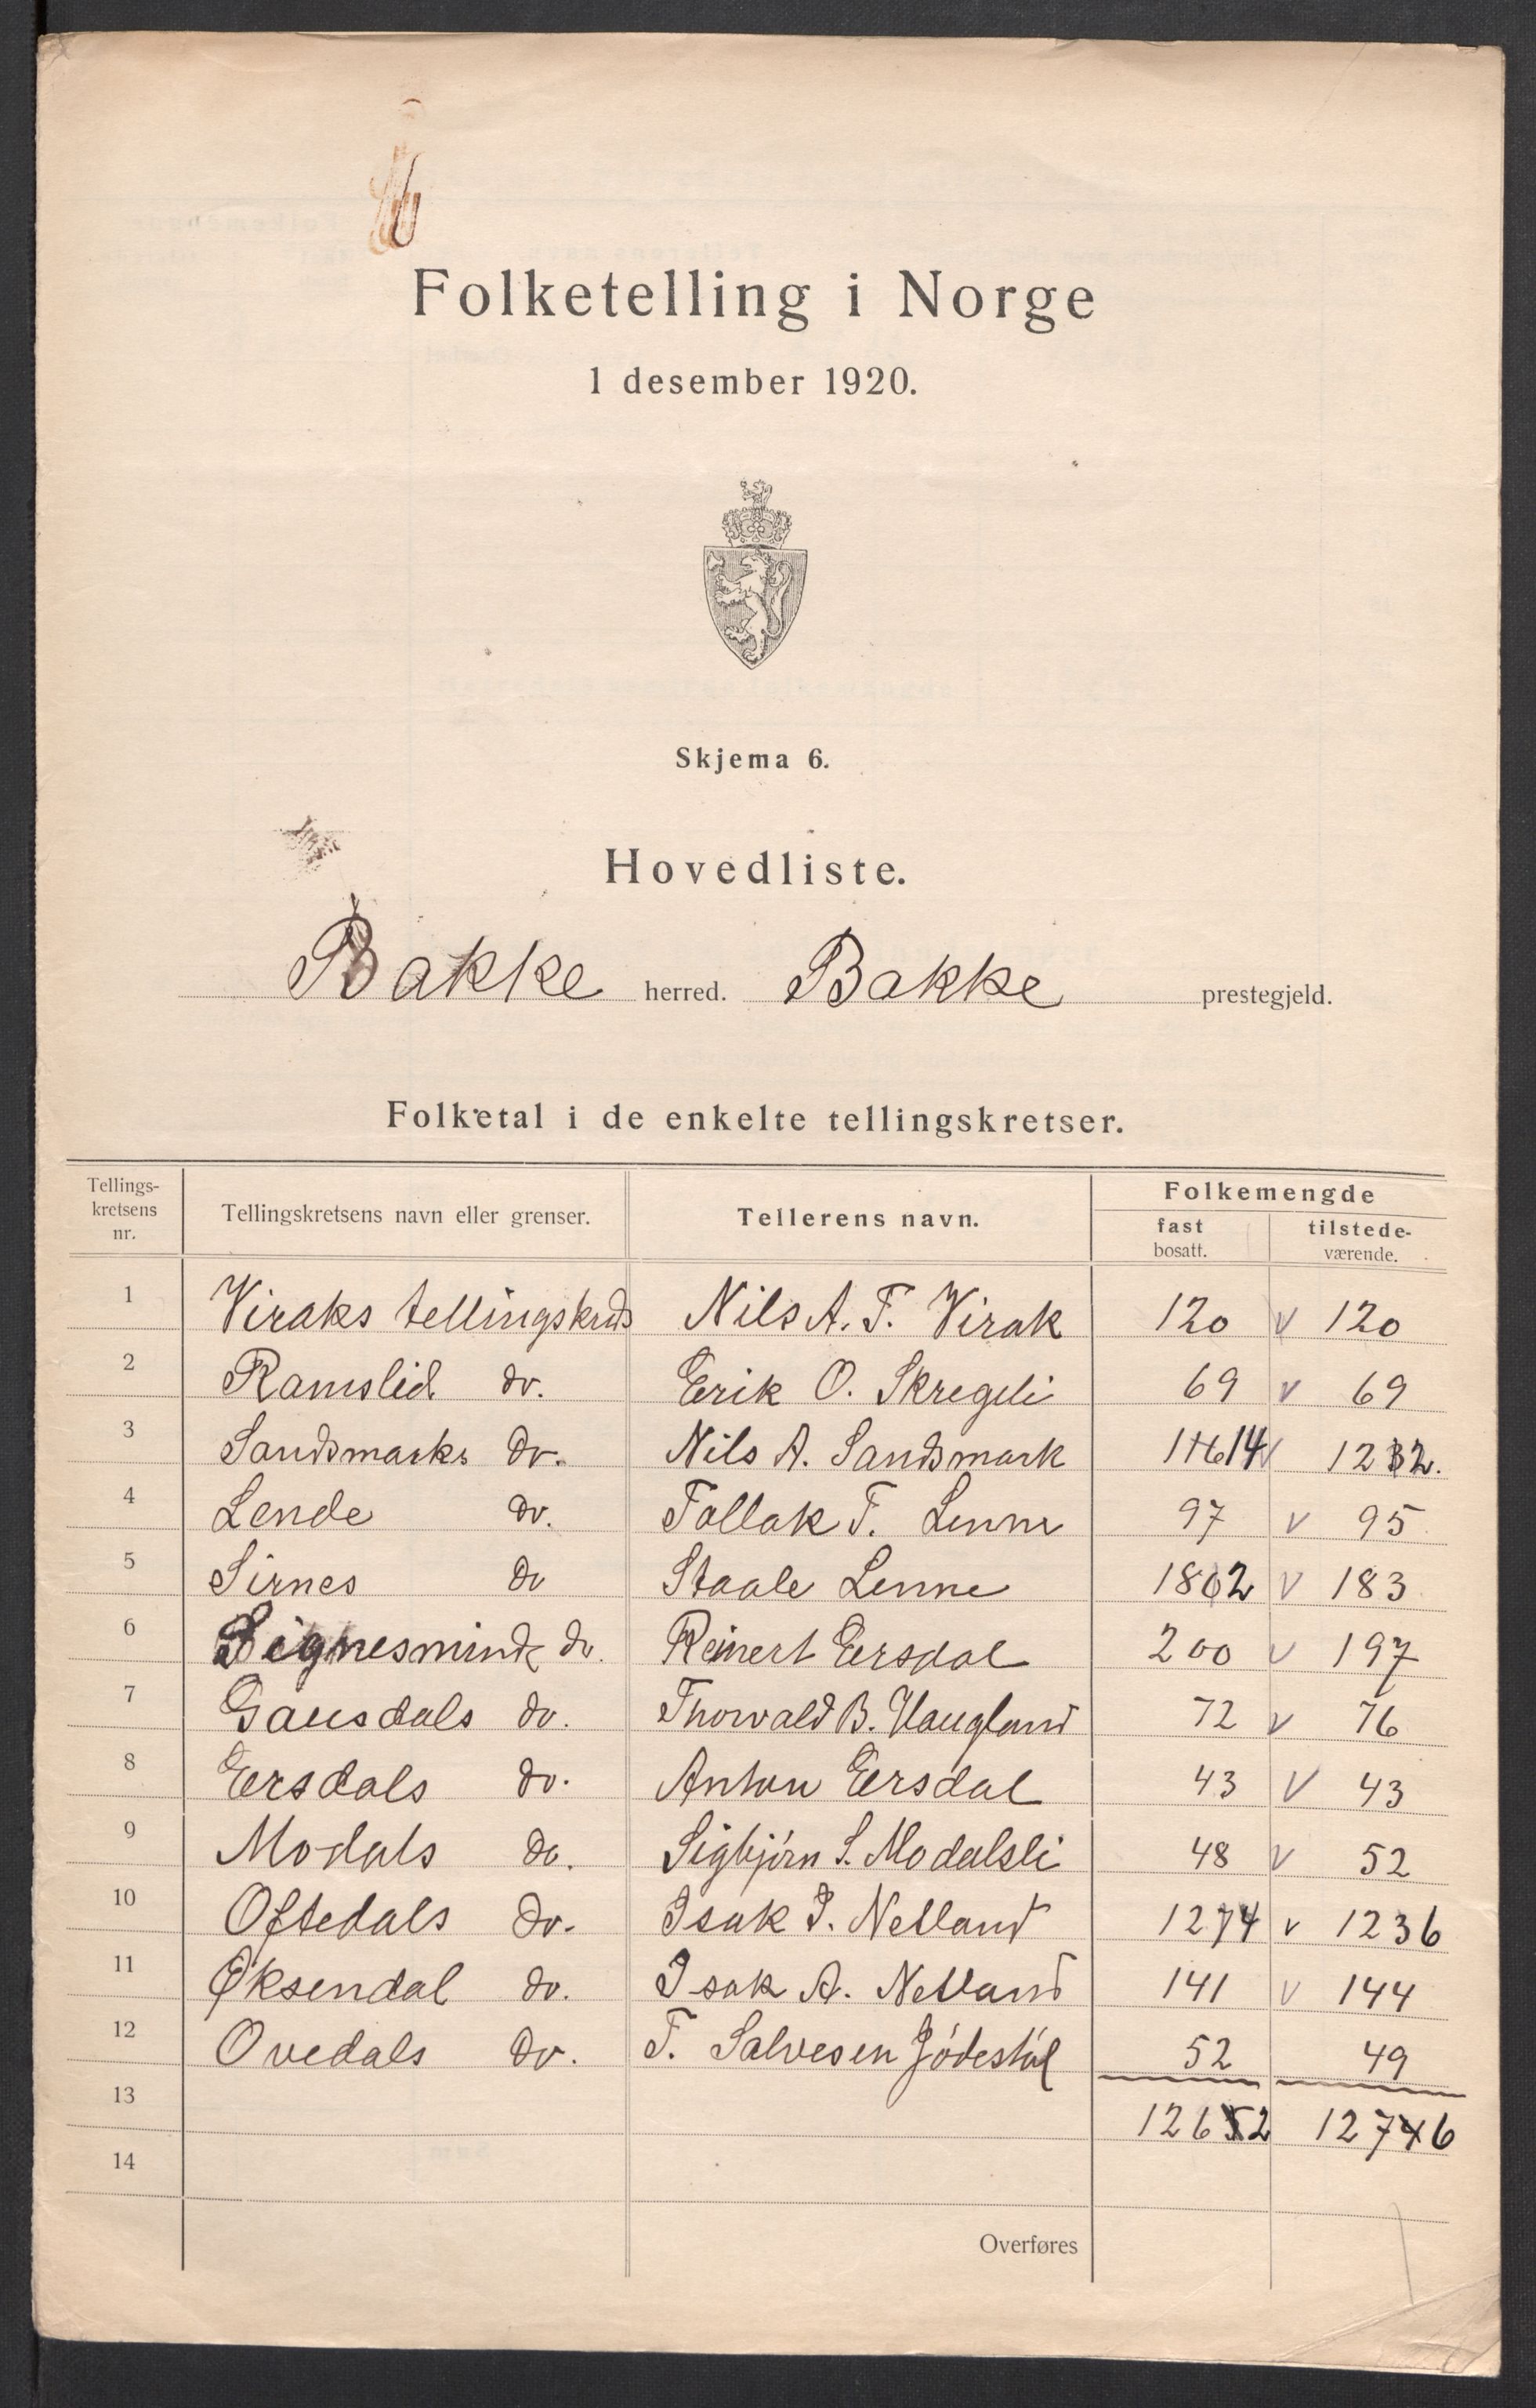 Folketelling i Norge
1 desember 1920.
Skjema 6.
Hovedliste.
Bakke herred. Bakke prestegjeld.
Folketal i de enkelte tellingskretser.
Tellings-
kretsens
nr.
Tellingskretsens navn eller grenser.
Tellerens navn.
Folkemengde
fast
bosatt.
tilstede-
værende.
1 Viraks tellingskrds Nils A. T. Virak 120 v 120
2 Ramslid do. Erik O. Skregeli 69 v 69
3 Sandsmarks do. Nils A. Sandsmark 11614 v 1232.
4 Lende do. Tollak T. Lenne 97 v 95
5 Sirnes do Staale Lenne 1802 v 183
6 Signesminde do. Reinert Eersdal 200 v 197
7 Gausdals do. Thorvald B. Haugland 72 v 76
8 Eersdals do. Anton Eersdal 43 v 43
9 Modals do. Sigbjörn S. Modalsli 48 v 52
10 Oftedals do. Isak I. Netland 1274 v 1236
11 Øksendal do. Isak A. Netland 141 v 144
12 Ovedals do. T. Salvesen Jödestöl 52 49
13 12652 12746
14
Overføres